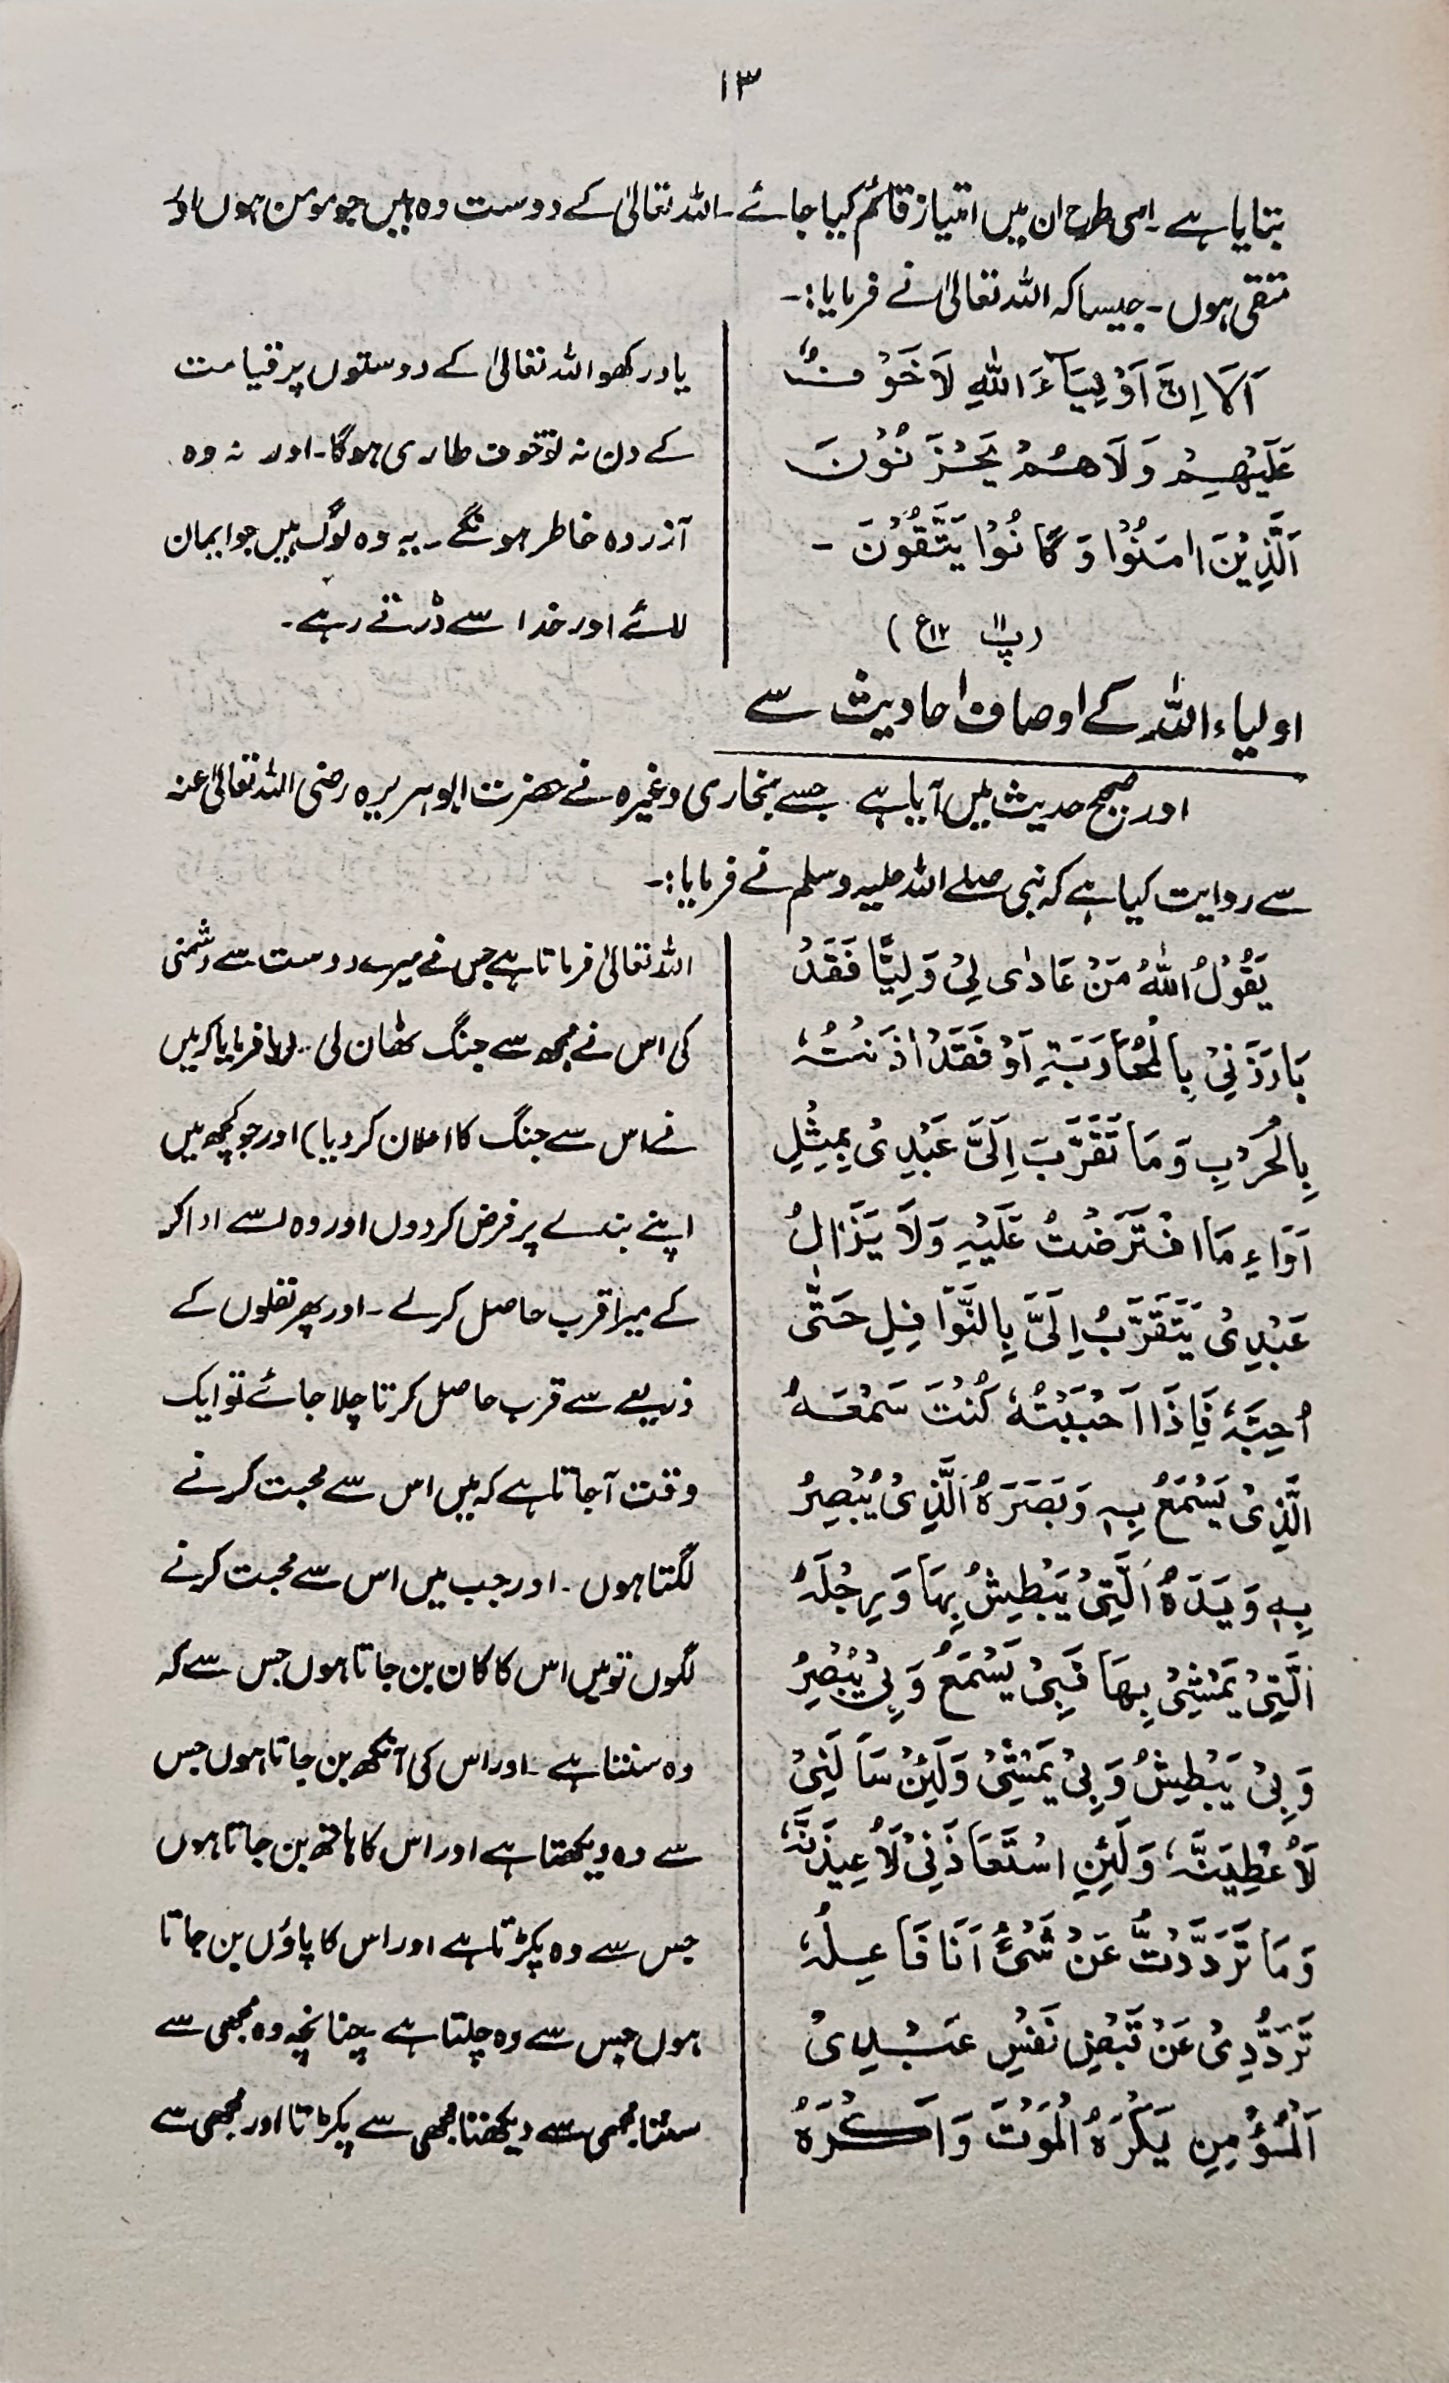 ۱۳
بتایا ہے۔ اسی طرح ان میں امتیاز قائم کیا جائے۔ اللہ تعالیٰ کے دوست وہ ہیں جو مومن ہوں اور
متقی ہوں۔ جیسا کہ اللہ تعالیٰ نے فرمایا:۔
اَلَا اِنَّ اَوْلِيَآءَ اللّٰهِ لَا خَوْفٌ
عَلَيْهِمْ وَلَا هُمْ يَحْزَنُوْنَ
اَلَّذِيْنَ اٰمَنُوْا وَكَانُوْا يَتَّقُوْنَ ۔
(پ ۱۱ ع ۱۲)
یاد رکھو اللہ تعالیٰ کے دوستوں پر قیامت
کے دن نہ تو خوف طاری ہوگا۔ اور نہ وہ
آزردہ خاطر ہونگے۔ یہ وہ لوگ ہیں جو ایمان
لائے اور خدا سے ڈرتے رہے۔
اولیاء اللہ کے اوصاف احادیث سے
اور صحیح حدیث میں آیا ہے جسے بخاری وغیرہ نے حضرت ابوہریرہ رضی اللہ تعالیٰ عنہ
سے روایت کیا ہے کہ نبی صلے اللہ علیہ وسلم نے فرمایا:۔
يَقُوْلُ اللّٰهُ مَنْ عَادٰى لِىْ وَلِيًّا فَقَدْ
بَارَزَنِىْ بِالْمُحَارَبَةِ اَوْ فَقَدْ اٰذَنْتُهٗ
بِالْحَرْبِ وَمَا تَقَرَّبَ اِلَىَّ عَبْدِىْ بِمِثْلِ
اَدَاءِ مَا افْتَرَضْتُ عَلَيْهِ وَلَا يَزَالُ
عَبْدِىْ يَتَقَرَّبُ اِلَىَّ بِالنَّوَافِلِ حَتّٰى
اُحِبَّهٗ فَاِذَا اَحْبَبْتُهٗ كُنْتُ سَمْعَهُ
الَّذِىْ يَسْمَعُ بِهٖ وَبَصَرَهُ الَّذِىْ يُبْصِرُ
بِهٖ وَيَدَهُ الَّتِىْ يَبْطِشُ بِهَا وَرِجْلَهُ
الَّتِىْ يَمْشِىْ بِهَا فَبِىْ يَسْمَعُ وَبِىْ يُبْصِرُ
وَبِىْ يَبْطِشُ وَبِىْ يَمْشِىْ وَلَئِنْ سَاَلَنِىْ
لَاُعْطِيَنَّهٗ وَلَئِنِ اسْتَعَاذَنِىْ لَاُعِيْذَنَّهٗ
وَمَا تَرَدَّدْتُّ عَنْ شَىْءٍ اَنَا فَاعِلُهٗ
تَرَدُّدِىْ عَنْ قَبْضِ نَفْسِ عَبْدِىْ
الْمُؤْمِنِ يَكْرَهُ الْمَوْتَ وَاَكْرَهُ
اللہ تعالیٰ فرماتا ہے جس نے میرے دوست سے دشمنی
کی اس نے مجھ سے جنگ ٹھان لی (یا فرمایا کہ میں
نے اس سے جنگ کا اعلان کر دیا) اور جو کچھ میں
اپنے بندے پر فرض کر دوں اور وہ اسے ادا کر
کے میرا قرب حاصل کرلے۔ اور پھر نفلوں کے
ذریعے سے قرب حاصل کرتا چلا جائے تو ایک
وقت آجاتا ہے کہ میں اس سے محبت کرنے
لگتا ہوں۔ اور جب میں اس سے محبت کرنے
لگوں تو میں اس کا کان بن جاتا ہوں جس سے کہ
وہ سنتا ہے۔ اور اس کی آنکھ بن جاتا ہوں جس
سے وہ دیکھتا ہے اور اس کا ہاتھ بن جاتا ہوں
جس سے وہ پکڑتا ہے اور اس کا پاؤں بن جاتا
ہوں جس سے وہ چلتا ہے چنانچہ وہ مجھی سے
سنتا مجھی سے دیکھتا مجھی سے پکڑتا اور مجھی سے